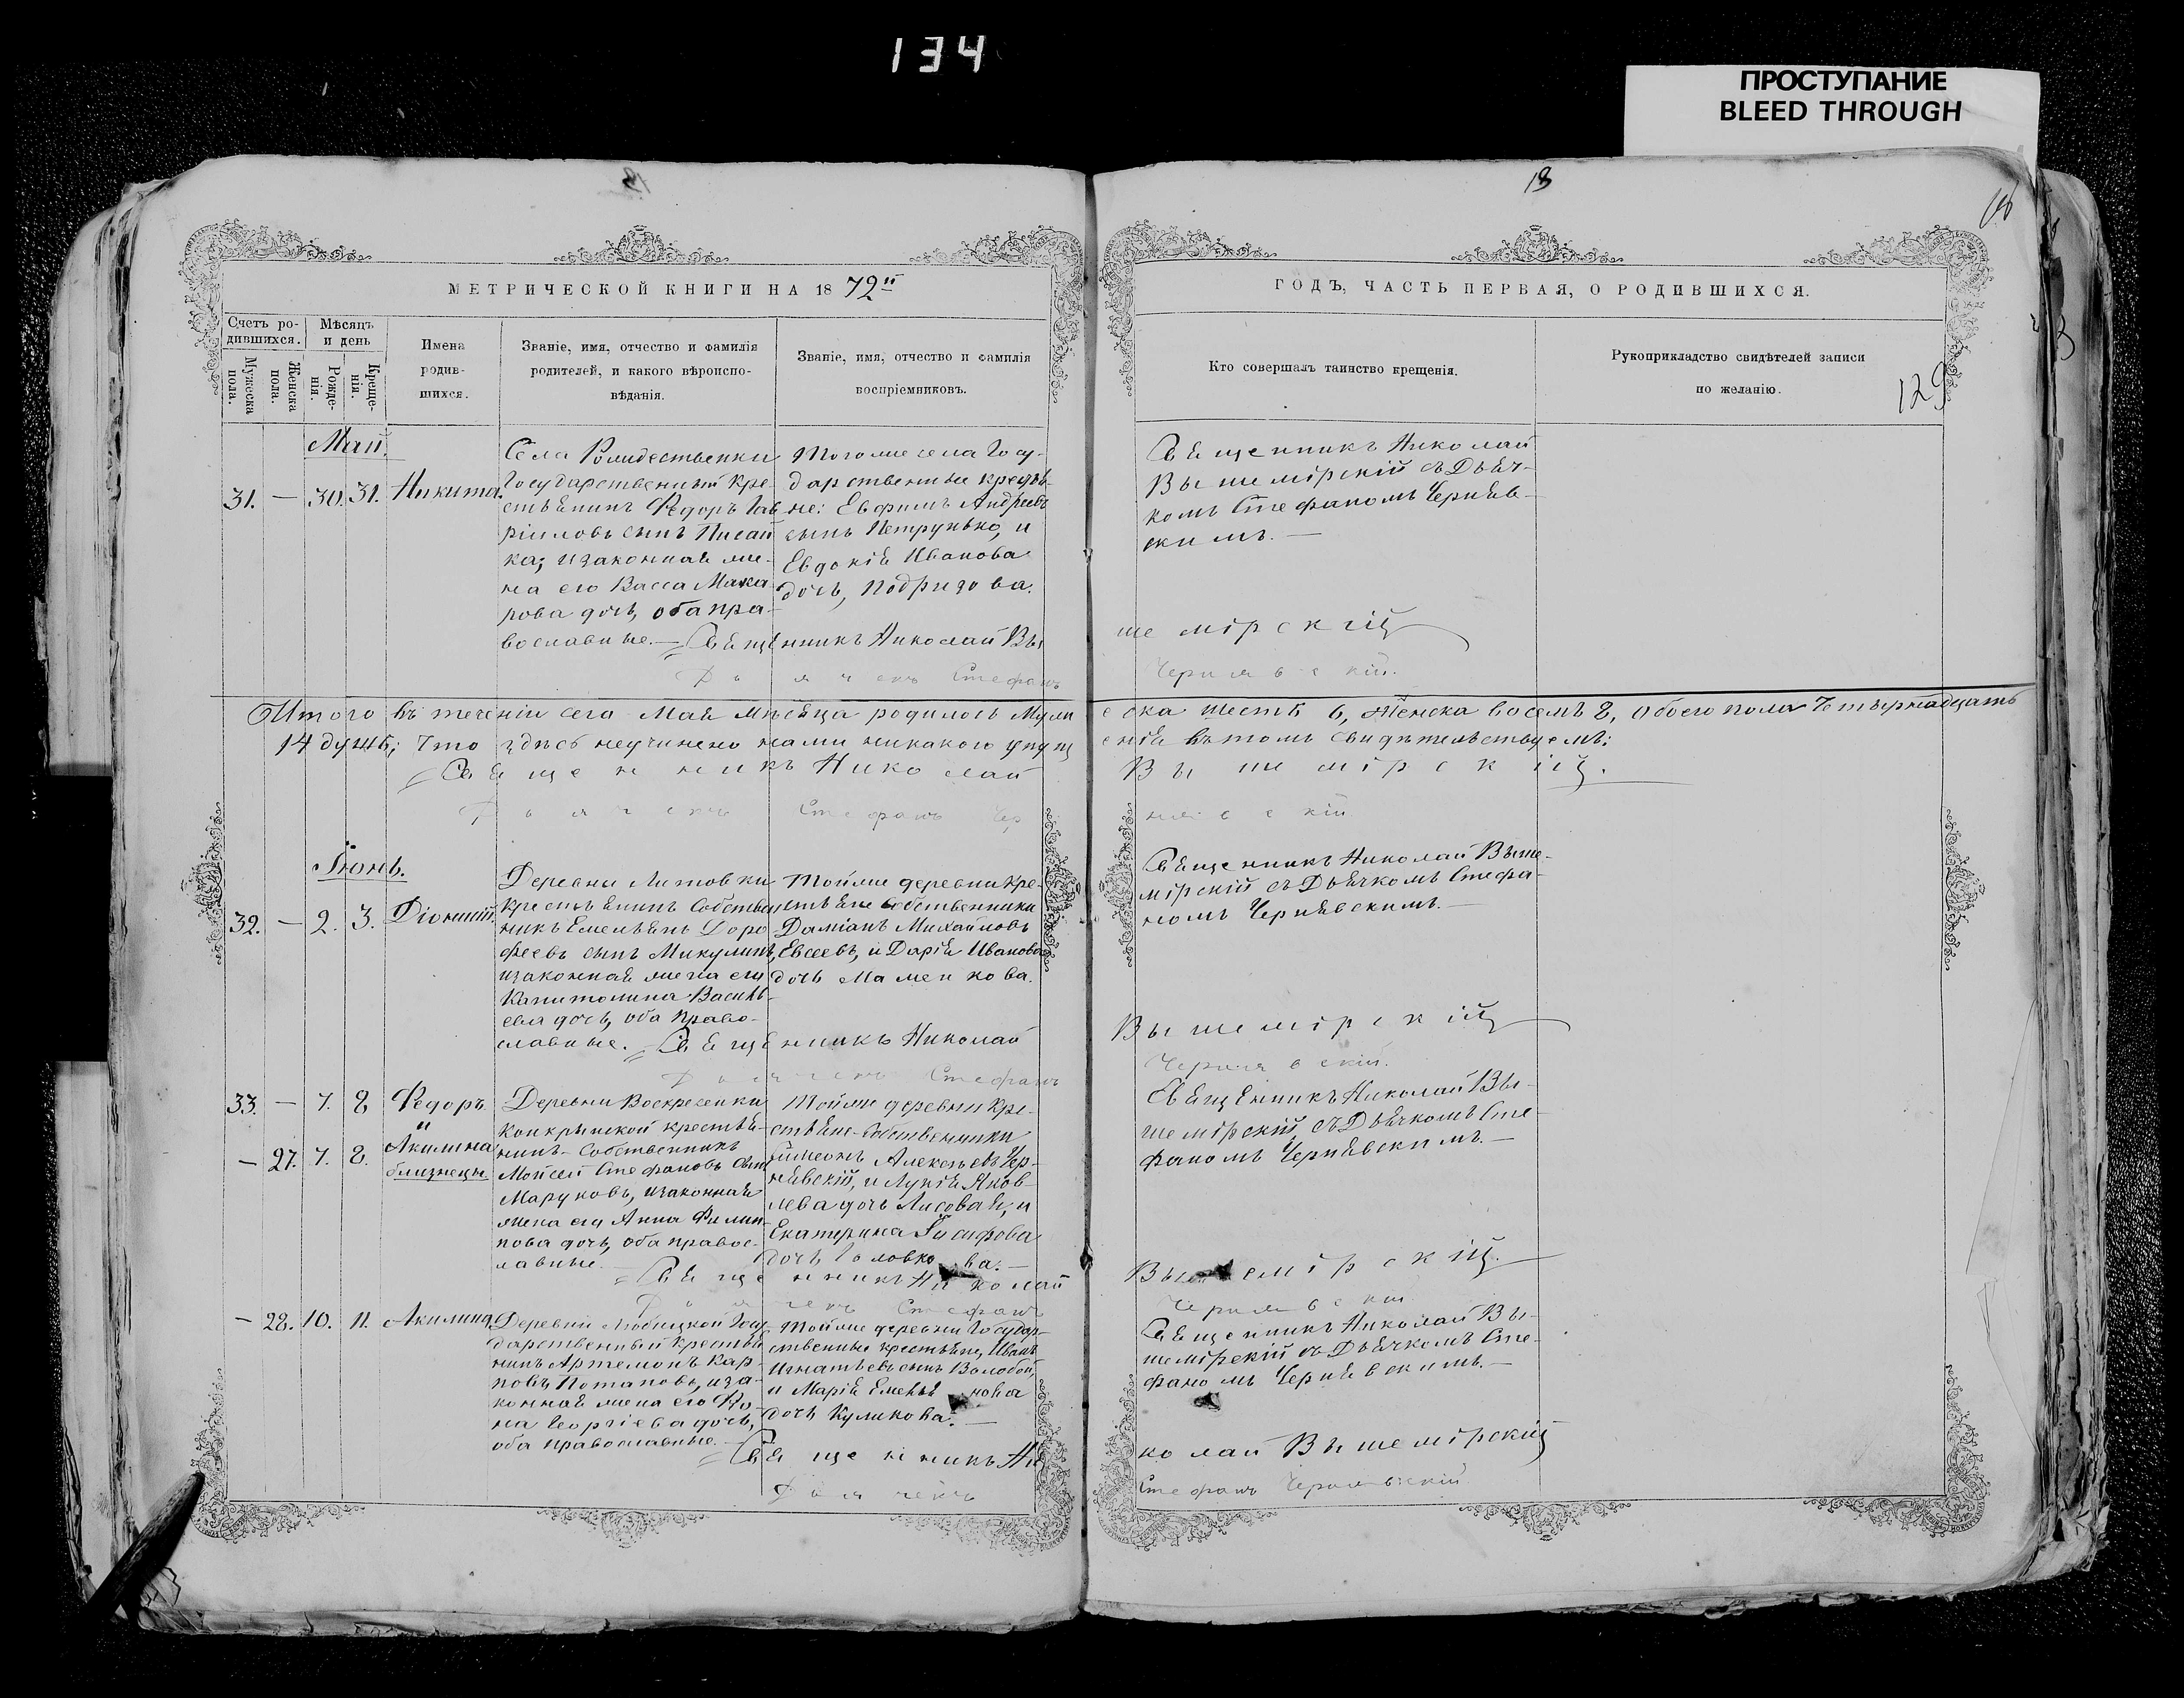 134
ПРОСТУПАНИЕ
BLEED THROUGH
18
МЕТРИЧЕСКОЙ КНИГИ НА 1872й
ГОДЪ, ЧАСТЬ ПЕРВАЯ, О РОДИВШИХСЯ.
129
Счетъ ро-
дившихся.
Мужеска пола.
Женска пола.
Мѣсяцъ
и день
Рожде-
нія.
Креще-
нія.
Имена
родив-
шихся.
Званіе, имя, отчество и фамилія
родителей, и какого вѣроиспо-
вѣданія.
Званіе, имя, отчество и фамилія
воспріемниковъ.
Кто совершалъ таинство крещенія.
Рукоприкладство свидѣтелей записи
по желанію.
Маи.
31. — 30. 31. Никита.
Села Рождественки
Государственный кре-
стьянинъ Федоръ Гав
ріиловъ сынъ Писай
ка, изаконная же-
на его Васса Мака
рова дочь, оба пра-
вославные. —
Тогоже села Госу-
дарственные крестья-
не: Евфимъ Андреевъ
сынъ Петрунько, и
Евдокія Иванова
дочь,
Священникъ Николай
Вышемірскій съ Дьяч-
комъ Стефаномъ Чернявс-
кимъ. —
Священникъ Николай Вышемірскій
Дьячекъ Стефанъ Чернявскій.
Итого въ теченіи сего Мая мѣсяца родилось Мужеска шесть 6, Женска восемь 8, обоего пола Четырнадцать
14 душъ; Что здѣсь неучинено нами никакого упущенія въ томъ свидѣтельствуемъ:
Священникъ Николай Вышемірскій.
Дьячекъ Стефанъ Чернявскій
Іюнь.
32. — 2. 3. Діонисій.
Деревни Литовки
крестьянинъ Собствен
никъ Емельянъ Доро
феевъ сынъ Микулинъ,
изаконная жена его
Капитолина Василь-
ева дочь, оба Право-
славные.
Тойже деревни кре-
стьяне собственники
Даміанъ Михайловъ
Евсеевъ, и Дарія Иванова
дочь Маменкова.
Священникъ Николай Выше-
мірскій съ Дьячкомъ Стефа-
номъ Чернявскимъ. —
Священникъ Николай Вышемірскій
Дьячекъ Стефанъ Чернявскій.
33. — 7. 8 Федоръ
и
— 27. 7. 8. Акилина
близнецы
Деревни Воскресенки
крестья-
нинъ-Собственникъ
Мойсей Стефановъ сынъ
Маруковъ, изаконная
жена его Анна Филип-
пова дочь, оба правос-
лавные.
Тойже деревни кре-
стьяне-Собственники
Симеонъ Алексѣевъ Чер-
нявскій, и Лукія Яков-
лева дочь Лисовая, и
Екатерина Іосифова
дочь Головкова. —
Священникъ Николай Вы-
шемірскій съ Дьячкомъ Сте-
фаномъ Чернявскимъ. —
Священникъ Николай Вышемірскій.
Дьячекъ Стефанъ Чернявскій
— 28. 10. 11. Акилина
Деревни Любицкой Госу-
дарственный крестья
нинъ Артемонъ Кар-
повъ Потаповъ, иза-
конная жена его
на Георгіева дочь,
оба православные.
Тойже деревни Государ-
ственные крестьяне, Иванъ
Игнатьевъ сынъ Волобой,
и Марія Емельянова
дочь Куликова. —
Священникъ Николай Вы-
шемірскій съ Дьячкомъ Сте-
фаномъ Чернявскимъ. —
Священникъ Николай Вышемірскій
Дьячекъ Стефанъ Чернявскій